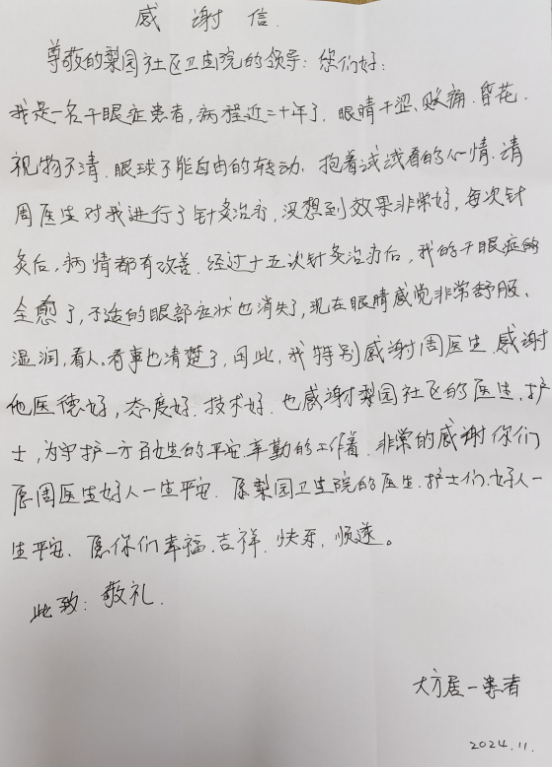 感谢信
尊敬的梨园社区卫生院的领导：您们好：
我是一名干眼症患者，病程近二十年了．眼睛干涩、酸痛．昏花．
视物不清．眼球不能自由的转动．抱着试试看的心情．请
周医生对我进行了针灸治疗，没想到效果非常好，每次针
灸后，病情都有改善．经过十五次针灸治疗后，我的干眼症好
全愈了，不适的眼部症状也消失了，现在眼睛感觉非常舒服、
湿润，看人、看事也清楚了，因此，我特别感谢周医生．感谢
他医德好，态度好．技术好．也感谢梨园社区的医生．护
士，为守护一方百姓的平安．辛勤的工作着．非常的感谢你们
愿周医生好人一生平安．愿梨园卫生院的医生．护士们．好人一
生平安．愿你们幸福．吉祥．快乐．顺遂。
此致：敬礼．
大方居一患者
2024.11.